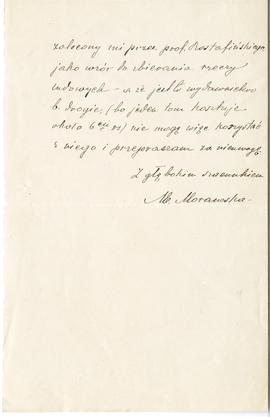 zalecony mi przez prof. Rostafińskiego,
jako wzór do zbierania rzeczy
ludowych - a że jest to wydawnictwo
b. drogie, (bo jeden tom kosztuje
około 6 rs) nie mogę więc korzystać
z niego i przepraszam za niemożę
Z głębokim szacunkiem
M. Morawska -